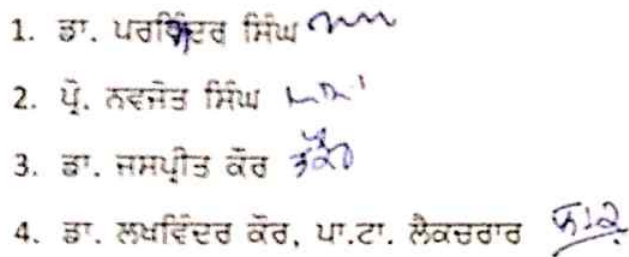 1. ਡਾ. ਪਰਵਿੰਦਰ ਸਿੰਘ
2. ਪ੍ਰੋ. ਨਵਜੋਤ ਸਿੰਘ
3. ਡਾ. ਜਸਪ੍ਰੀਤ ਕੌਰ
4. ਡਾ. ਲਖਵਿੰਦਰ ਕੌਰ, ਪਾ.ਟਾ. ਲੈਕਚਰਾਰ